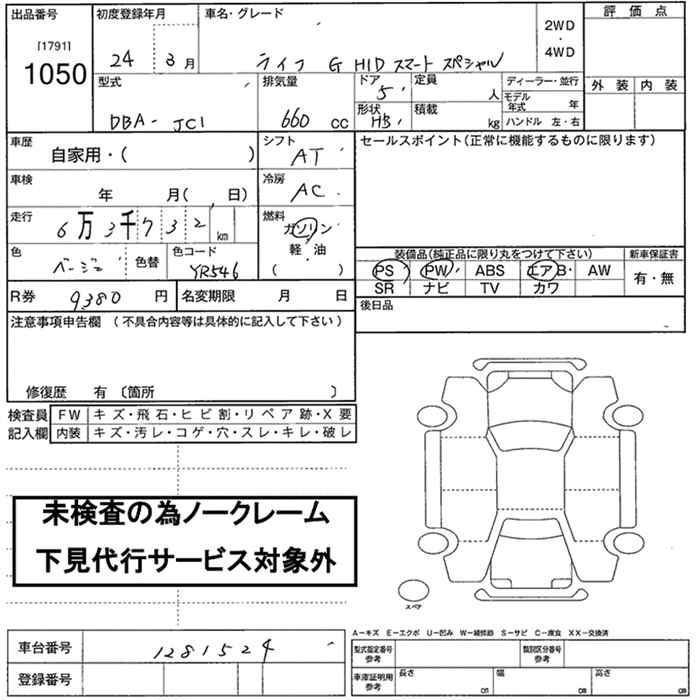 出品番号 初度登録年月 車名・グレード 2WD ・ 4WD 評価点
[1791]
1050 24 3月 ライフ G HID スマート スペシャル
外装 内装
型式 排気量 ドア 5 定員 人 ディーラー・並行
モデル年式 年
DBA- JC1 660 cc 形状 HB 積載 kg ハンドル 左・右
車歴 自家用・( ) シフト AT セールスポイント(正常に機能するものに限ります)
車検 年 月( 日) 冷房 AC
走行 6万3千732 km 燃料 ガソリン
軽・油
( )
色 ベージュ 色替 色コード YR546 装備品(純正品に限り丸をつけて下さい) 新車保証書
PS PW ABS エアB AW 有・無
SR ナビ TV カワ
R券 9380 円 名変期限 月 日 後日品
注意事項申告欄 (不具合内容等は具体的に記入して下さい)
修復歴 有 〔箇所 〕
検査員 FW キズ・飛石・ヒビ割・リペア跡・X要
記入欄 内装 キズ・汚レ・コゲ・穴・スレ・キレ・破レ
未検査の為ノークレーム
下見代行サービス対象外
スペア
A−キズ E−エクボ U−凹み W−補修跡 S−サビ C−腐食 XX−交換済
車台番号 1281524 型式指定番号 参考 類別区分番号 参考
登録番号 車庫証明用 参考 長さ cm 幅 cm 高さ cm